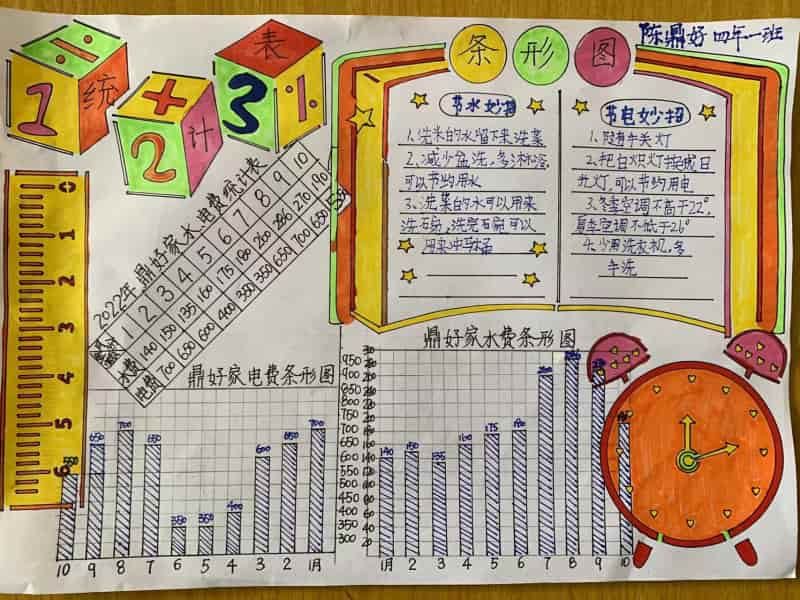 统
计
表
1
2
3
条形图
陈鼎好 四年一班
节水妙招
1、洗米的水留下来洗菜
2、减少盆洗，多淋浴，
可以节约用水
3、洗菜的水可以用来
洗石碗，洗完石碗可以
用来冲马桶
节电妙招
1、随手关灯
2、把白炽灯换成日
光灯，可以节约用电
3、冬季空调不高于22°，
夏季空调不低于26°
4、少用洗衣机，多
手洗
0
1
2
3
4
5
6
2022年鼎好家水、电费统计表
1 2 3 4 5 6 7 8 9 10
水费 140 150 135 160 175 180 260 286 270 190
电费 700 650 600 400 350 350 650 700 650
鼎好家电费条形图
650 700 650 350 350 400 600 650 700
10 9 8 7 6 5 4 3 2 1月
鼎好家水费条形图
950
900
850
800
750
700
650
600
550
500
450
400
350
300
140 150 135 160 175 180
1月 2 3 4 5 6 7 8 9 10